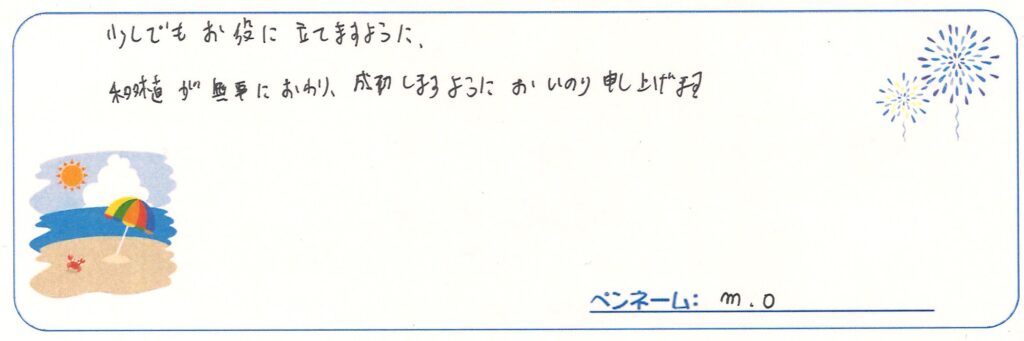 少しでもお役に立てますように、
移植が無事におわり、成功しますようにおいのり申し上げます
ペンネーム: m.o